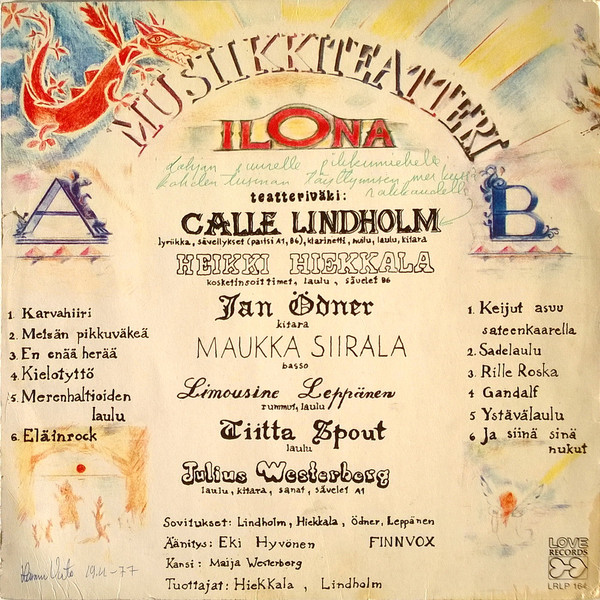 MUSIIKKITEATTERI
ILONA
teatteriväki:
CALLE LINDHOLM
lyriikka, sävellykset (paitsi A1, B6), klarinetti, huilu, laulu, kitara
HEIKKI HIEKKALA
kosketinsoittimet, laulu, sävelet B6
Jan Ödner
kitara
MAUKKA SIIRALA
basso
Limousine Leppänen
rummut, laulu
Tiitta Spout
laulu
Julius Westerberg
laulu, kitara, sanat, sävelet A1
A
1. Karvahiiri
2. Metsän pikkuväkeä
3. En enää herää
4. Kielotyttö
5. Merenhaltioiden
laulu
6. Eläinrock
B
1. Keijut asuu
sateenkaarella
2. Sadelaulu
3. Rille Roska
4 Gandalf
5 Ystävälaulu
6 Ja siinä sinä
nukut
Sovitukset: Lindholm, Hiekkala, Ödner, Leppänen
Äänitys: Eki Hyvönen FINNVOX
Kansi: Maija Westerberg
Tuottajat: Hiekkala, Lindholm
19.11-77
LOVE
RECORDS
LRLP